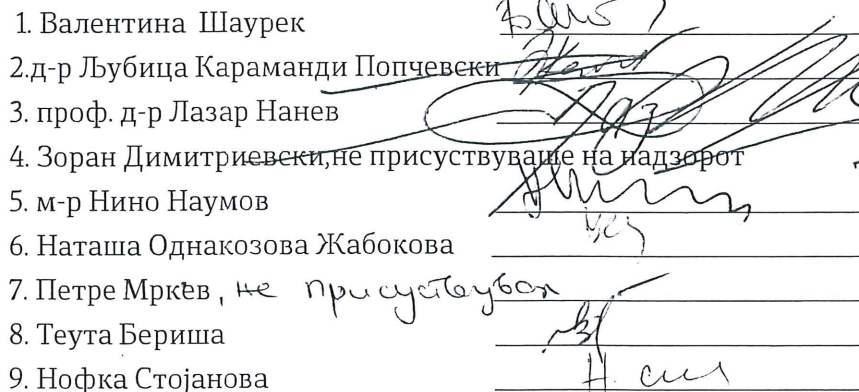 1. Валентина Шаурек
2.д-р Љубица Караманди Попчевски
3. проф. д-р Лазар Нанев
4. Зоран Димитриевски,не присуствуваше на надзорот
5. м-р Нино Наумов
6. Наташа Однакозова Жабокова
7. Петре Мркев, не присуствувал
8. Теута Бериша
9. Нофка Стојанова